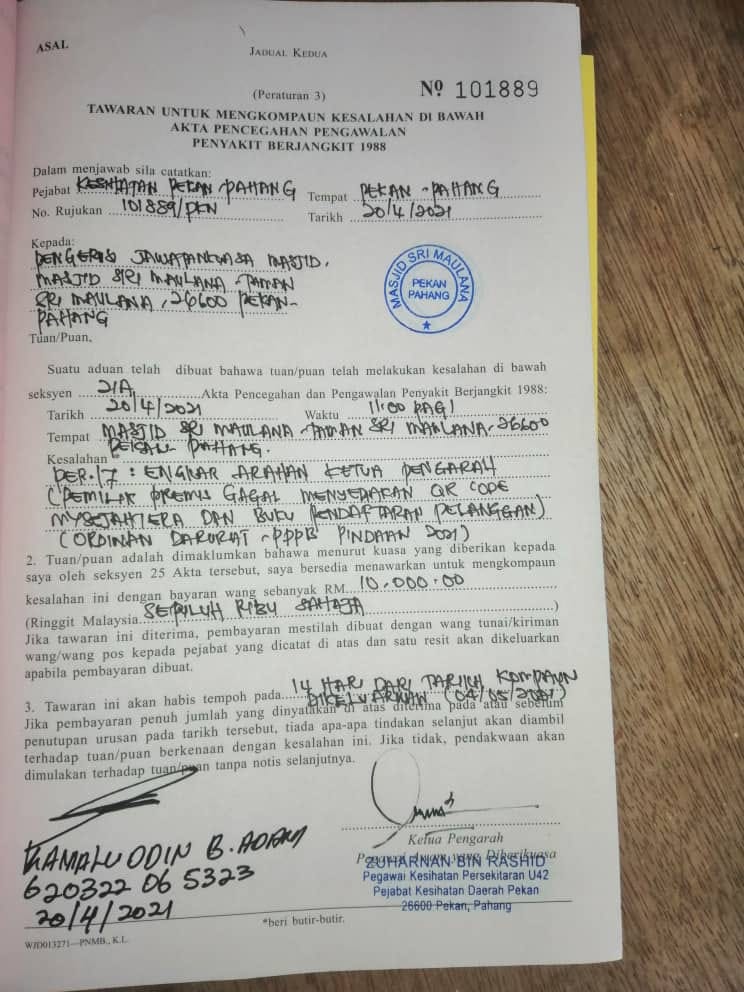 ASAL
JADUAL KEDUA
(Peraturan 3)
Nº 101889
TAWARAN UNTUK MENGKOMPAUN KESALAHAN DI BAWAH
AKTA PENCEGAHAN PENGAWALAN
PENYAKIT BERJANGKIT 1988
Dalam menjawab sila catatkan:
Pejabat KESIHATAN PEKAN - PAHANG Tempat PEKAN - PAHANG
No. Rujukan 101889/PKN Tarikh 20/4/2021
Kepada:
PENGERUSI JAWATANKUASA MASJID.
MASJID SRI MAULANA - TAMAN
SRI MAULANA, 26600 PEKAN-
PAHANG
MASJID SRI MAULANA
PEKAN
PAHANG
Tuan/Puan,
Suatu aduan telah dibuat bahawa tuan/puan telah melakukan kesalahan di bawah
seksyen 21A Akta Pencegahan dan Pengawalan Penyakit Berjangkit 1988:
Tarikh 20/4/2021 Waktu 11:00 PAGI
Tempat MASJID SRI MAULANA - TAMAN SRI MAULANA - 26600
PEKAN PAHANG.
Kesalahan
PER.17 : ENGKAR ARAHAN KETUA PENGARAH
(PEMILIK PREMIS GAGAL MENYEDIAKAN QR CODE
MYSEJAHTERA DAN BUKU PENDAFTARAN PELANGGAN)
(ORDINAN DARURAT - PPPB PINDAAN 2021)
2. Tuan/puan adalah dimaklumkan bahawa menurut kuasa yang diberikan kepada
saya oleh seksyen 25 Akta tersebut, saya bersedia menawarkan untuk mengkompaun
kesalahan ini dengan bayaran wang sebanyak RM 10,000.00
(Ringgit Malaysia SEPULUH RIBU SAHAJA )
Jika tawaran ini diterima, pembayaran mestilah dibuat dengan wang tunai/kiriman
wang/wang pos kepada pejabat yang dicatat di atas dan satu resit akan dikeluarkan
apabila pembayaran dibuat.
3. Tawaran ini akan habis tempoh pada 14 HARI DARI TARIKH KOMPAUN
DIKELUARKAN (04/05/2021)
Jika pembayaran penuh jumlah yang dinyatakan di atas diterima pada atau sebelum
penutupan urusan pada tarikh tersebut, tiada apa-apa tindakan selanjut akan diambil
terhadap tuan/puan berkenaan dengan kesalahan ini. Jika tidak, pendakwaan akan
dimulakan terhadap tuan/puan tanpa notis selanjutnya.
KAMALUDDIN B. ADAM
620322 06 5323
20/4/2021
Ketua Pengarah
Pegawai Awam yang Diberikuasa
ZUHARNAN BIN RASHID
Pegawai Kesihatan Persekitaran U42
Pejabat Kesihatan Daerah Pekan
26600 Pekan, Pahang
*beri butir-butir.
WJD013271—PNMB., K.L.